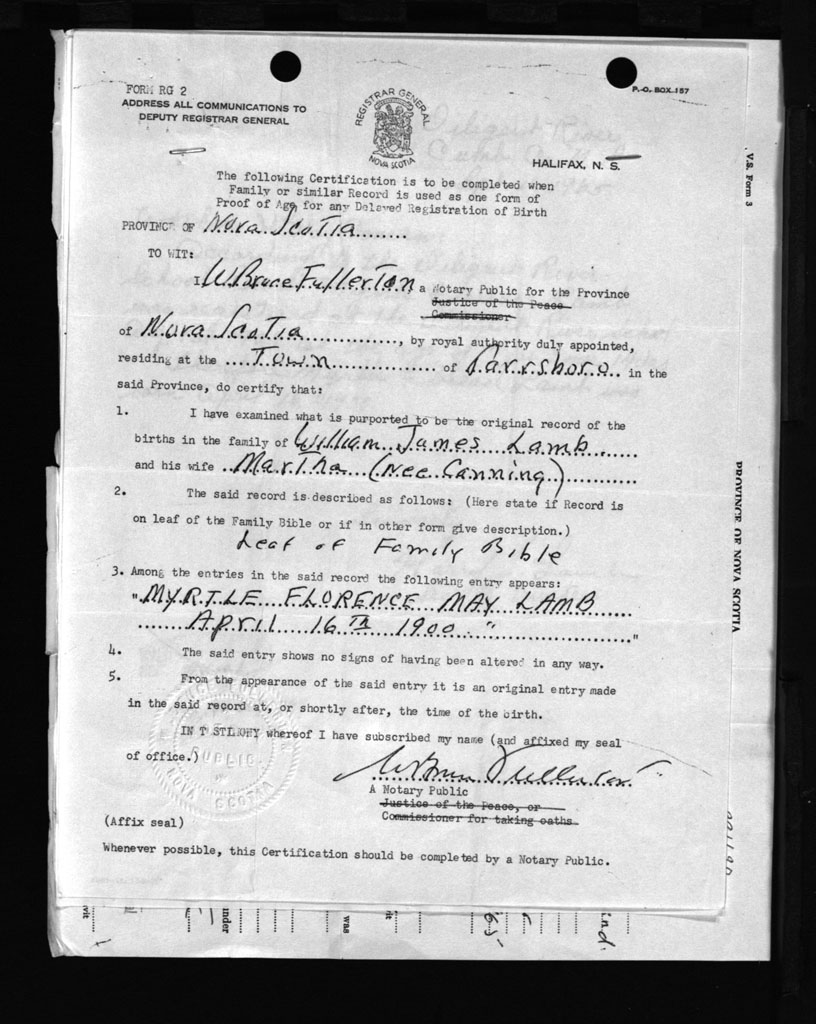 FORM RG 2
ADDRESS ALL COMMUNICATIONS TO
DEPUTY REGISTRAR GENERAL
REGISTRAR GENERAL
NOVA SCOTIA
P. O. BOX 157
HALIFAX, N. S.
V.S. Form 3
The following Certification is to be completed when
Family or similar Record is used as one form of
Proof of Age for any Delayed Registration of Birth
PROVINCE OF Nova Scotia
TO WIT:
I W Bruce Fullerton a Notary Public for the Province
Justice of the Peace
Commissioner
of Nova Scotia, by royal authority duly appointed,
residing at the Town of Parrsboro in the
said Province, do certify that:
1. I have examined what is purported to be the original record of the
births in the family of William James Lamb
and his wife Martha (Nee Canning)
2. The said record is described as follows: (Here state if Record is
on leaf of the Family Bible or if in other form give description.)
Leaf of Family Bible
3. Among the entries in the said record the following entry appears:
"MYRTLE FLORENCE MAY LAMB
April 16TH 1900 " "
4. The said entry shows no signs of having been altered in any way.
5. From the appearance of the said entry it is an original entry made
in the said record at, or shortly after, the time of the birth.
IN TESTIMONY whereof I have subscribed my name (and affixed my seal
of office.)
W Bruce Fullerton
A Notary Public
Justice of the Peace, or
Commissioner for taking oaths
(Affix seal)
Whenever possible, this Certification should be completed by a Notary Public.
PROVINCE OF NOVA SCOTIA
PUBLIC
NOVA SCOTIA
under
was
ind.
65